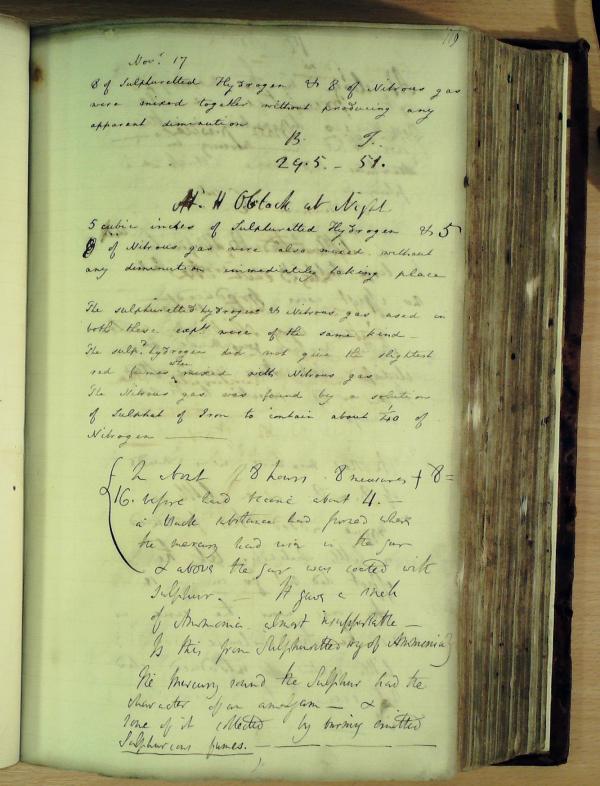 179
Nov.r 17
8 of Sulphuretted Hydrogen & 8 of Nitrous gas
were mixed together without producing any
apparent diminution
B. T.
29.5. – 51.
At 11 Oclock at Night
5 cubic inches of Sulphuretted Hydrogen & 5
of Nitrous gas were also mixed without
any diminution immediately taking place
The sulphuretted hydrogen & Nitrous gas used in
both these expts were of the same kind –
The sulp.d hydrogen did not give the slightest
red fumes when mixed with Nitrous gas
The Nitrous gas was found by a solution
of Sulphat of Iron to contain about 1/40 of
Nitrogen ——
In about 8 hours 8 measures + 8 =
16. before had become about 4. –
a black substance had formed where
the mercury had risen in the jar
& above the jar was coated with
Sulphur. – It gave a smell
of Ammonia almost insupportable –
Is this from Sulphuretted Hy of Ammonia?
The Mercury round the Sulphur had the
character of an amalgam – &
some of it collected by burning emitted
Sulphureous fumes. ——